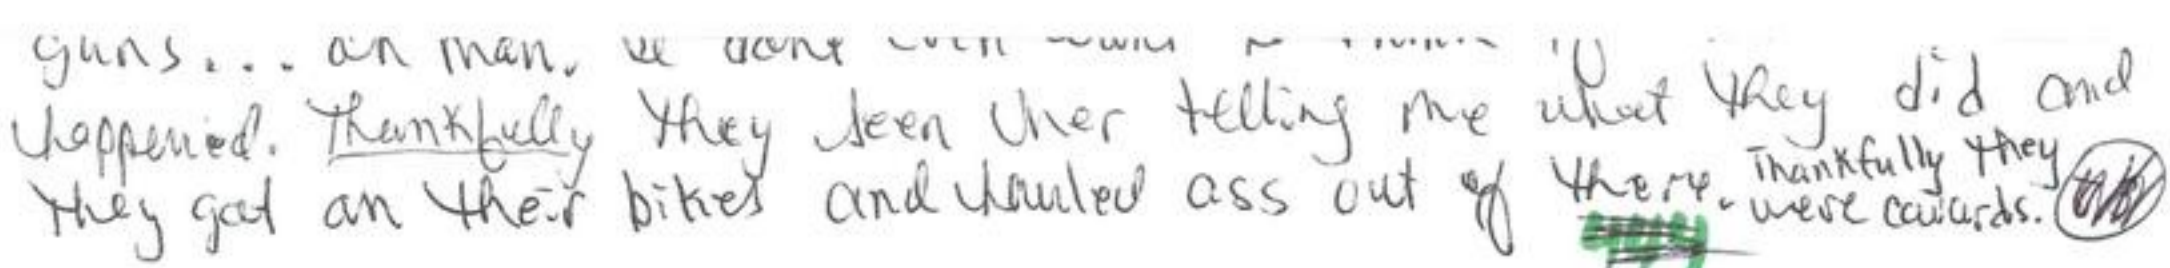 guns... oh man.
happened. Thankfully they seen her telling me what they did and
they got on their bikes and hauled ass out of there. Thankfully they
were cowards.